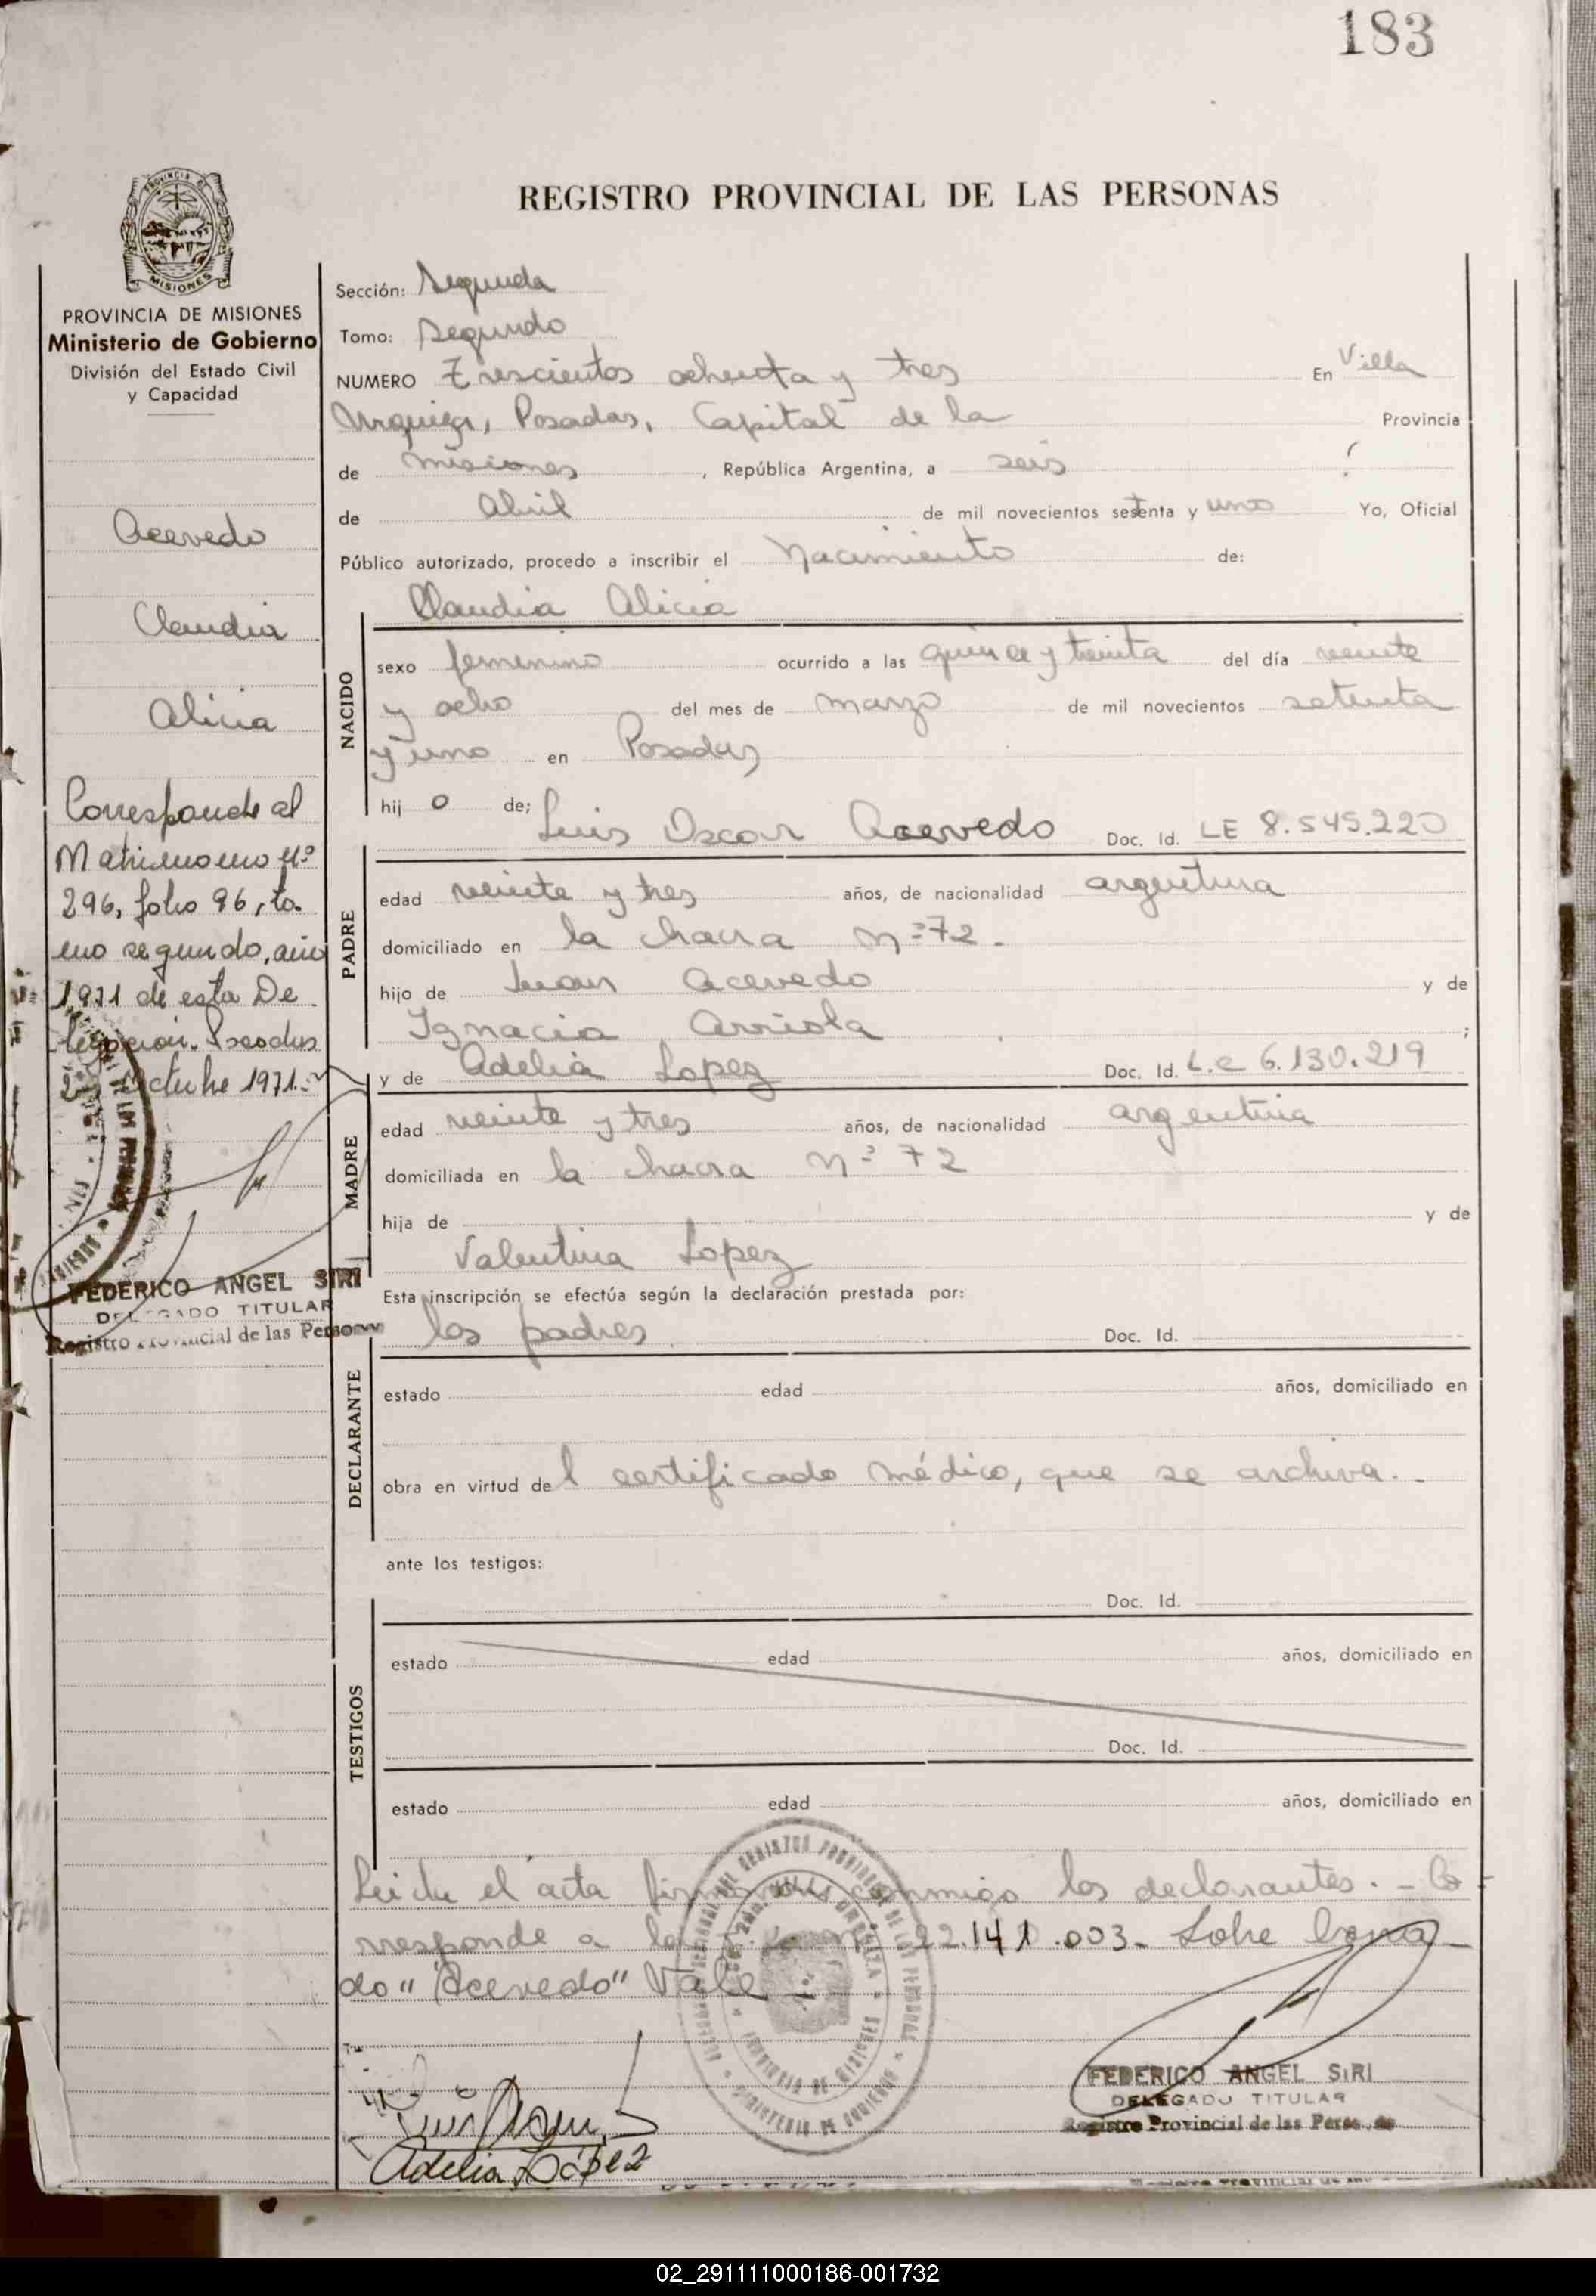 183
REGISTRO PROVINCIAL DE LAS PERSONAS
PROVINCIA DE MISIONES
Ministerio de Gobierno
División del Estado Civil
y Capacidad
Acevedo
Claudia
Alicia
Corresponde al
Matrimonio nº
296, folio 96, to
mo segundo, año
1971 de esta De
legación. Posadas
Octubre 1971.
FEDERICO ANGEL SIRI
DELEGADO TITULAR
Registro Provincial de las Person
Sección: Segunda
Tomo: Segundo
NUMERO Trescientos ochenta y tres En Villa
Urquiza, Posadas, Capital de la Provincia
de Misiones, República Argentina, a seis
de Abril de mil novecientos setenta y uno Yo, Oficial
Público autorizado, procedo a inscribir el Nacimiento de:
Claudia Alicia
NACIDO
sexo femenino ocurrido a las quince y treinta del día veinte
y ocho del mes de marzo de mil novecientos setenta
y uno en Posadas
hij o de; Luis Oscar Acevedo Doc. Id. LE 8.545.220
PADRE
edad veinte y tres años, de nacionalidad argentina
domiciliado en la chacra nº 72.
hijo de Juan Acevedo y de
Ignacia Arriola ;
y de Adelia Lopez Doc. Id. L.C 6.130.219
MADRE
edad veinte y tres años, de nacionalidad argentina
domiciliada en la chacra nº 72
hija de y de
Valentina Lopez
Esta inscripción se efectúa según la declaración prestada por:
los padres Doc. Id.
DECLARANTE
estado edad años, domiciliado en
obra en virtud del certificado médico, que se archiva..
ante los testigos:
Doc. Id.
TESTIGOS
estado edad años, domiciliado en
Doc. Id.
estado edad años, domiciliado en
Leida el acta firmaron conmigo los declarantes. - Co-
rresponde a la 22.141.003- Sobre borra
do "Acevedo" Vale
Adelia López
FEDERICO ANGEL SIRI
DELEGADO TITULAR
Registro Provincial de las Personas
02_291111000186-001732